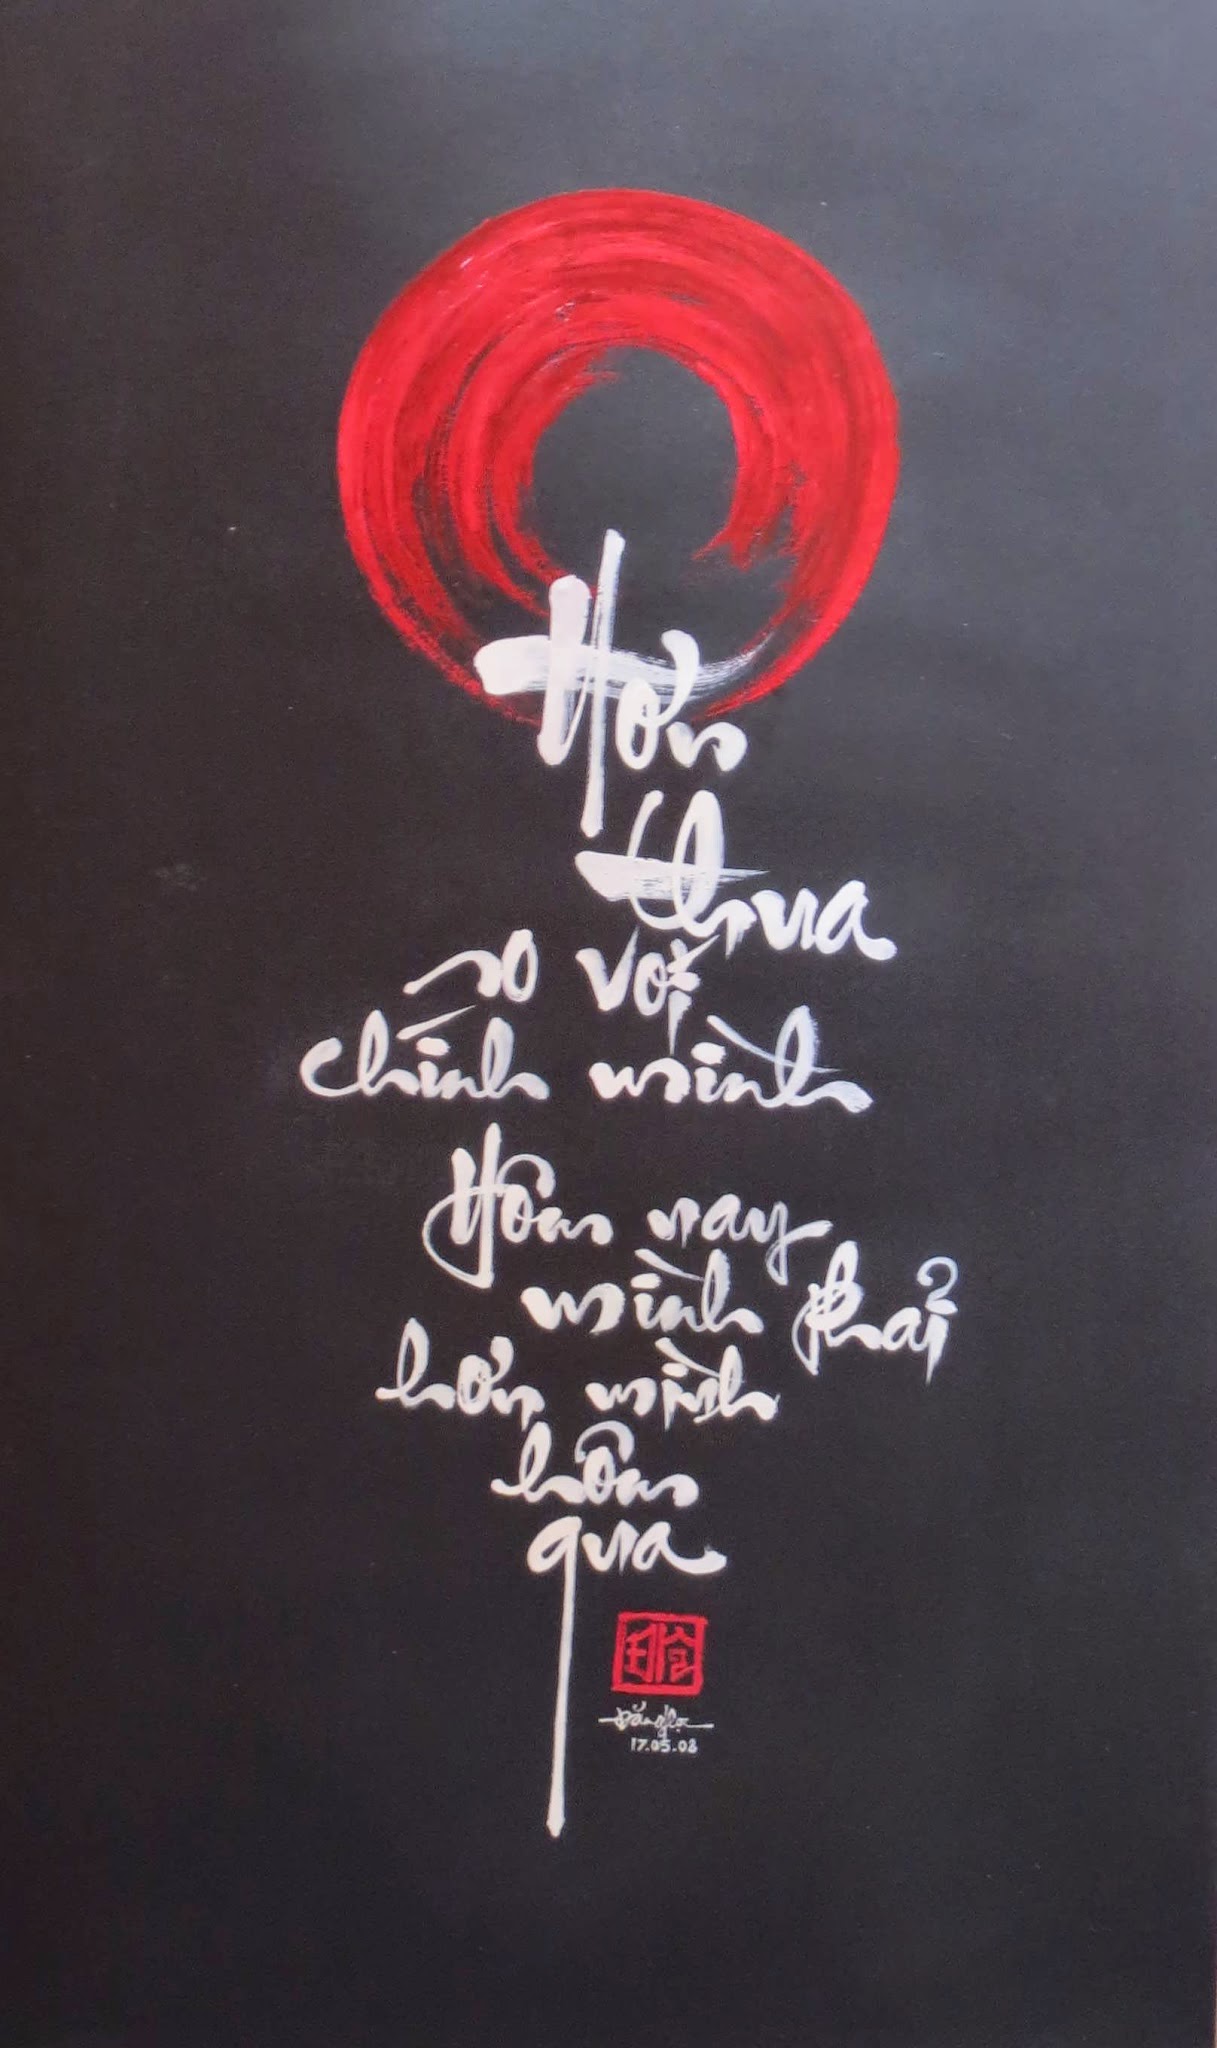 Hơn
thua
so với
chính mình
Hôm nay
mình phải
hơn mình
hôm
qua
17.05.08